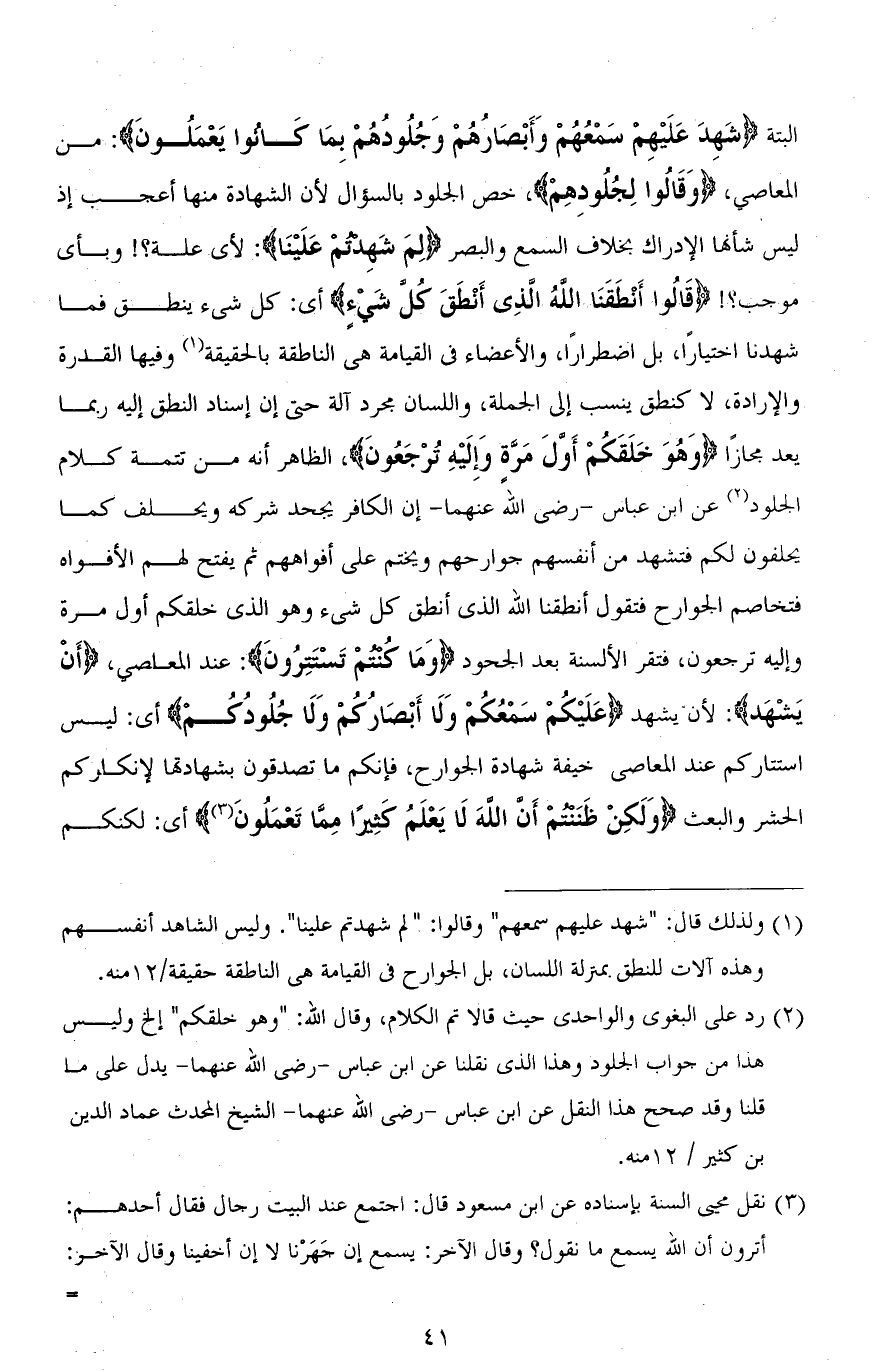 البتة ﴿شَهِدَ عَلَيْهِمْ سَمْعُهُمْ وَأَبْصَارُهُمْ وَجُلُودُهُمْ بِمَا كَانُوا يَعْمَلُونَ﴾: من
المعاصي، ﴿وَقَالُوا لِجُلُودِهِمْ﴾، خص الجلود بالسؤال لأن الشهادة منها أعجب إذ
ليس شأنها الإدراك بخلاف السمع والبصر ﴿لِمَ شَهِدْتُمْ عَلَيْنَا﴾: لأى علة؟! وبأى
موجب؟! ﴿قَالُوا أَنْطَقَنَا اللَّهُ الَّذِى أَنْطَقَ كُلَّ شَيْءٍ﴾ أى: كل شىء ينطق فما
شهدنا اختيارًا، بل اضطرارًا، والأعضاء فى القيامة هى الناطقة بالحقيقة(١) وفيها القدرة
والإرادة، لا كنطق ينسب إلى الجملة، واللسان مجرد آلة حتى إن إسناد النطق إليه ربما
يعد مجازًا ﴿وَهُوَ خَلَقَكُمْ أَوَّلَ مَرَّةٍ وَإِلَيْهِ تُرْجَعُونَ﴾، الظاهر أنه من تتمة كلام
الجلود(٢) عن ابن عباس -رضى الله عنهما- إن الكافر يجحد شركه ويحلف كما
يحلفون لكم فتشهد من أنفسهم جوارحهم ويختم على أفواههم ثم يفتح لهم الأفواه
فتخاصم الجوارح فتقول أنطقنا الله الذى أنطق كل شىء وهو الذى خلقكم أول مرة
وإليه ترجعون، فتقر الألسنة بعد الجحود ﴿وَمَا كُنْتُمْ تَسْتَتِرُونَ﴾: عند المعاصي، ﴿أَنْ
يَشْهَد﴾: لأن يشهد ﴿عَلَيْكُمْ سَمْعُكُمْ وَلَا أَبْصَارُكُمْ وَلَا جُلُودُكُمْ﴾ أى: ليس
استتاركم عند المعاصى خيفة شهادة الجوارح، فإنكم ما تصدقون بشهادتها لإنكاركم
الحشر والبعث ﴿وَلَكِنْ ظَنَنْتُمْ أَنَّ اللَّهَ لَا يَعْلَمُ كَثِيرًا مِمَّا تَعْمَلُونَ(٣)﴾ أى: لكنكم
(١) ولذلك قال: "شهد عليهم سمعهم" وقالوا: "لم شهدتم علينا". وليس الشاهد أنفسهم
وهذه آلات للنطق بمنزلة اللسان، بل الجوارح فى القيامة هى الناطقة حقيقة/١٢منه.
(٢) رد على البغوى والواحدى حيث قالا تم الكلام، وقال الله: "وهو خلقكم" إلخ وليس
هذا من جواب الجلود وهذا الذى نقلنا عن ابن عباس -رضى الله عنهما- يدل على ما
قلنا وقد صحح هذا النقل عن ابن عباس -رضى الله عنهما- الشيخ المحدث عماد الدين
بن كثير / ١٢منه.
(٣) نقل محيى السنة بإسناده عن ابن مسعود قال: اجتمع عند البيت رجال فقال أحدهم:
أترون أن الله يسمع ما نقول؟ وقال الآخر: يسمع إن جَهَرْنا لا إن أخفينا وقال الآخر:
=
٤١